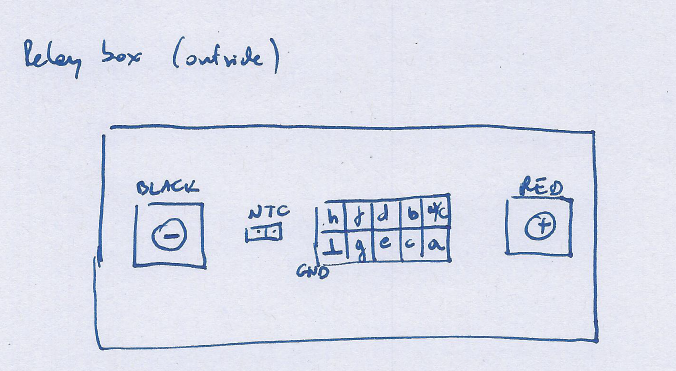 Relay box (outside)
BLACK
NTC
RED
-
h f d b n/c
⊥ g e c a
+
GND